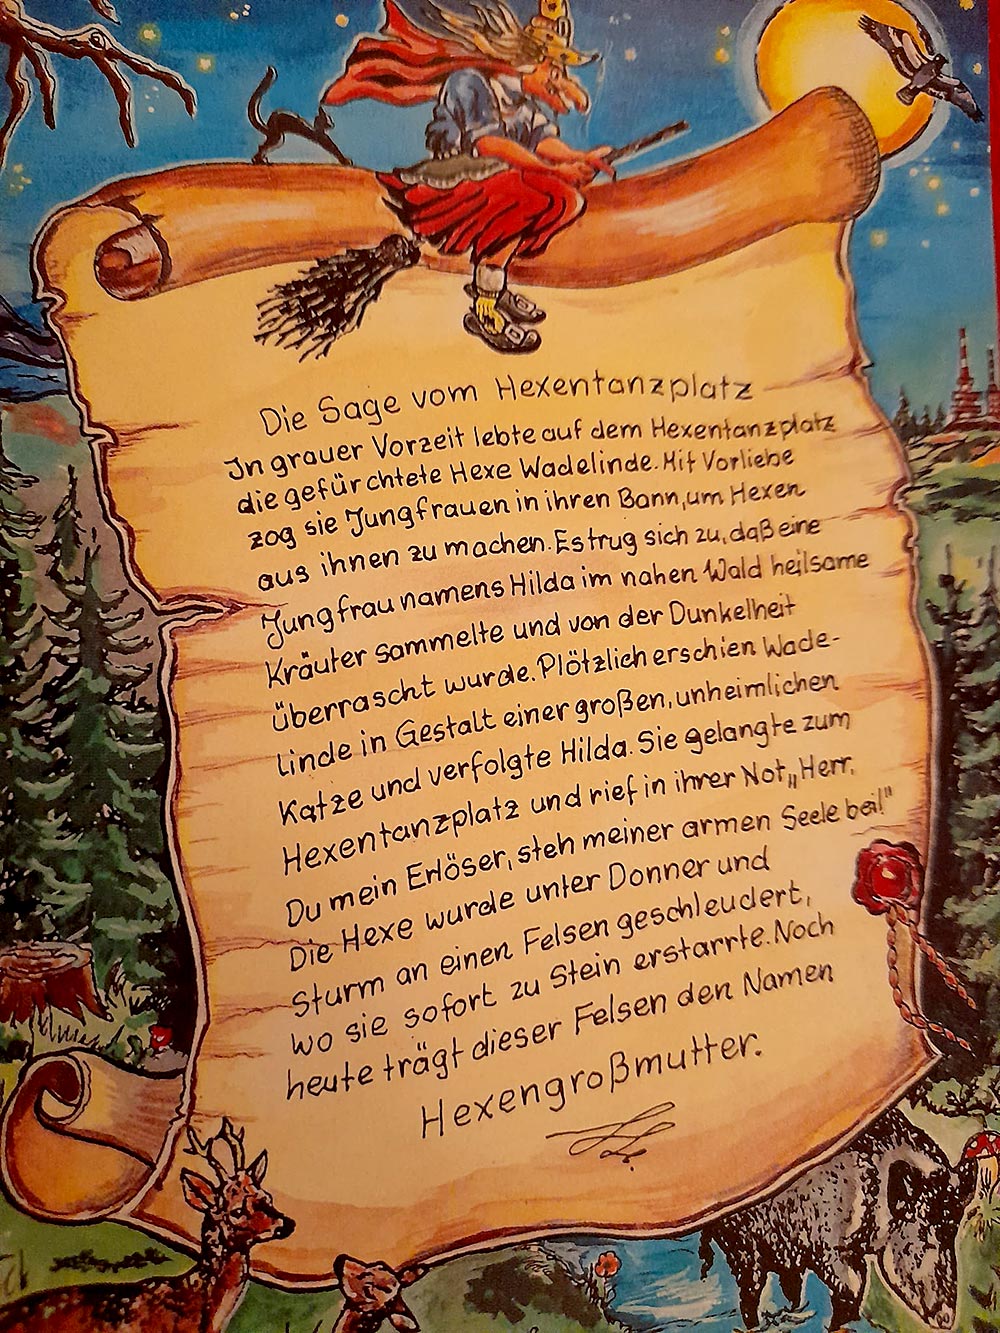 Die Sage vom Hexentanzplatz
In grauer Vorzeit lebte auf dem Hexentanzplatz
die gefürchtete Hexe Wadelinde. Mit Vorliebe
zog sie Jungfrauen in ihren Bann, um Hexen
aus ihnen zu machen. Es trug sich zu, daß eine
Jungfrau namens Hilda im nahen Wald heilsame
Kräuter sammelte und von der Dunkelheit
überrascht wurde. Plötzlich erschien Wade-
linde in Gestalt einer großen, unheimlichen
Katze und verfolgte Hilda. Sie gelangte zum
Hexentanzplatz und rief in ihrer Not „Herr,
Du mein Erlöser, steh meiner armen Seele bei!"
Die Hexe wurde unter Donner und
Sturm an einen Felsen geschleudert,
wo sie sofort zu Stein erstarrte. Noch
heute trägt dieser Felsen den Namen
Hexengroßmutter.